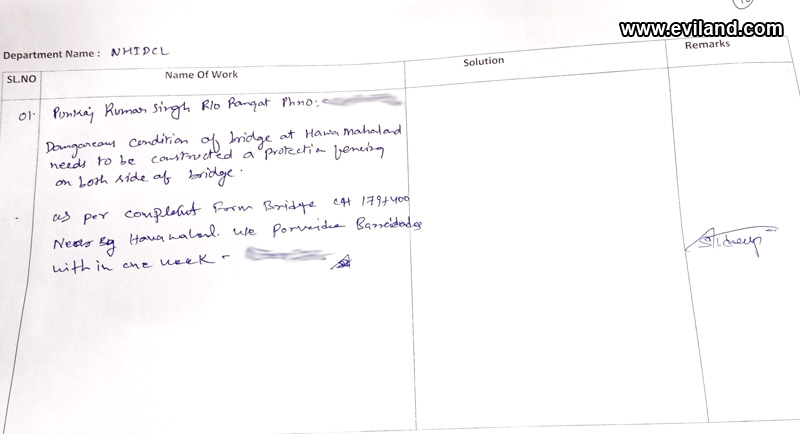 www.eviland.com
Department Name : NHIDCL
SL.NO Name Of Work Solution Remarks
01. Punkaj Kumar Singh R/o Rangat Ph no:
Dangareous condition of bridge at Hawa mahalad
needs to be constructed a protection fencing
on both side of bridge.
as per complent Form Bridge CH 179+400
Hawa we Barricades
with in one week -